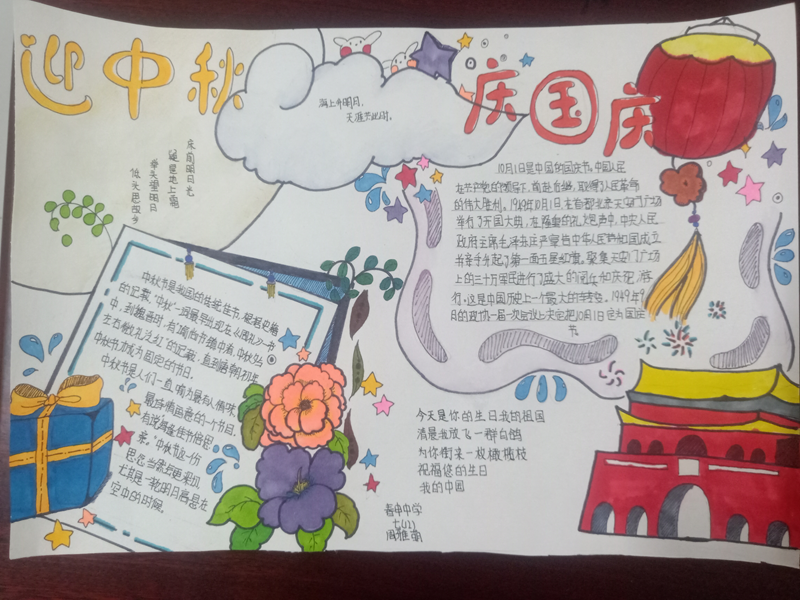 迎中秋
庆国庆
海上升明月,
天涯共此时。
床前明月光
疑是地上霜
举头望明月
低头思故乡
中秋节是我国的传统佳节。根据史籍
的记载,“中秋”一词最早出现在《周礼》一书
中,到魏晋时,有
左右微服泛江”的记载。直到唐朝初年,
中秋节才成为固定的节日。
中秋节是人们一直喻为最有人情味、
最诗情画意的一个节日。
有说,每逢佳节倍思
亲。”中秋节这一份
思念当然更深切,
尤其是一轮明月高挂在
空中的时候。
10月1日是中国的国庆节。中国人民
在共产党的领导下,前赴后继,取得了人民革命
的伟大胜利。1949年10月1日,在首都北京天安门广场
举行了开国大典,在隆重的礼炮声中,中央人民
政府主席毛泽东庄严宣告中华人民共和国成立
并亲手升起了第一面五星红旗。聚集天安门广场
上的三十万军民进行了盛大的阅兵和庆祝游
行。这是中国历史上一个最大的转变。1949年9
月的政协一届一次会议上决定把10月1日定为国庆
节
今天是你的生日我的祖国
清晨我放飞一群白鸽
为你衔来一枚橄榄枝
祝福您的生日
我的中国
中学
七(12)